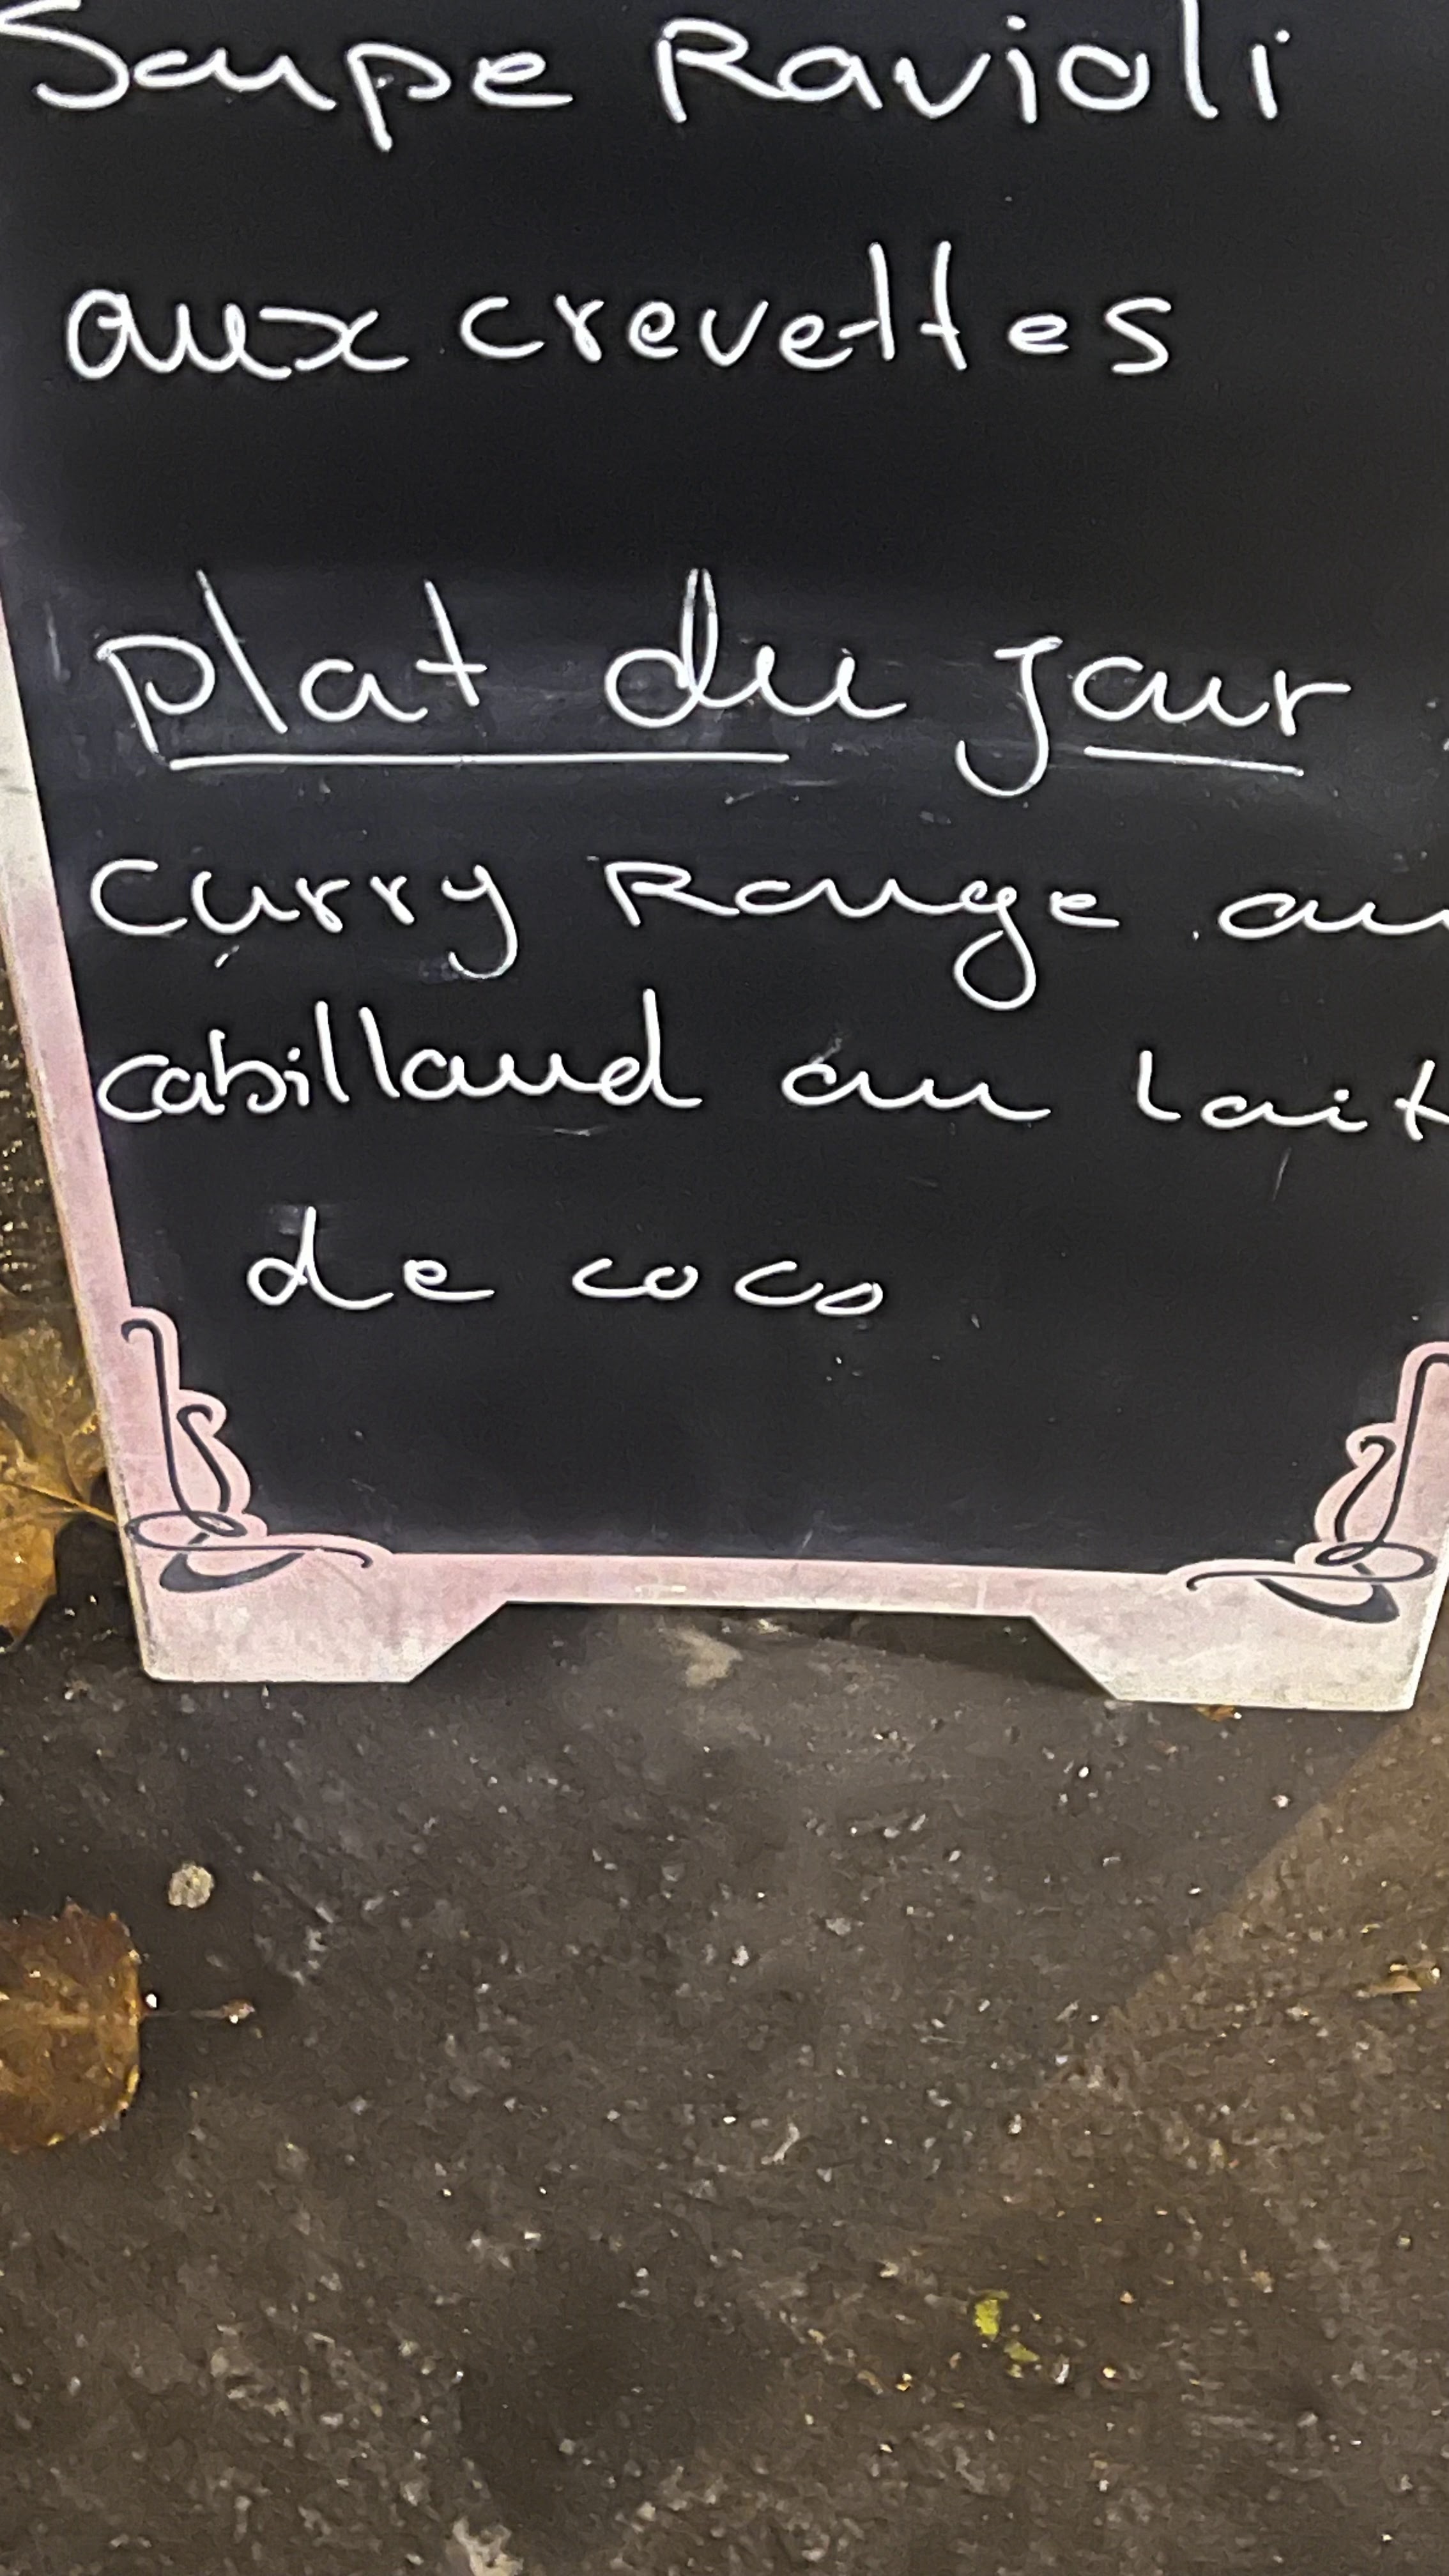 Soupe Ravioli
aux crevettes
plat du jour :
Curry Rouge au
cabillaud au lait
de coco